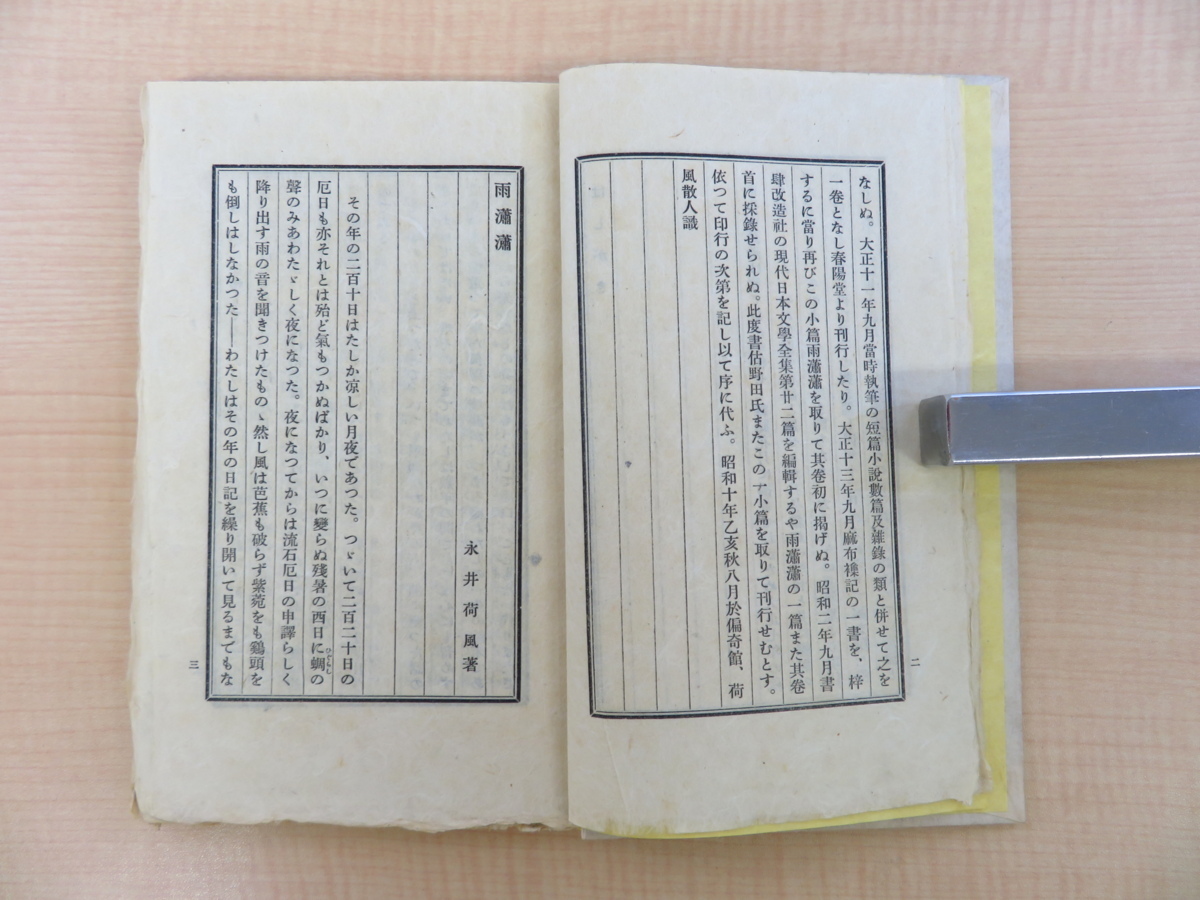 なしぬ。大正十一年九月當時執筆の短篇小說數篇及雜錄の類と併せて之を
一卷となし春陽堂より刊行したり。大正十三年九月麻布襍記の一書を、梓
するに當り再びこの小篇雨瀟瀟を取りて其卷初に揭げぬ。昭和二年九月書
肆改造社の現代日本文學全集第廿二篇を編輯するや雨瀟瀟の一篇また其卷
首に採錄せられぬ。此度書估野田氏またこの一小篇を取りて刊行せむとす。
依つて印行の次第を記し以て序に代ふ。昭和十年乙亥秋八月於偏奇館、荷
風散人識
二
雨瀟瀟
永井荷風著
その年の二百十日はたしか凉しい月夜であつた。つゞいて二百二十日の
厄日も亦それとは殆ど氣もつかぬばかり、いつに變らぬ殘暑の西日に蜩の
ひぐらし
聲のみあわたゞしく夜になつた。夜になつてからは流石厄日の申譯らしく
降り出す雨の音を聞きつけたものゝ然し風は芭蕉も破らず紫菀をも鷄頭を
も倒しはしなかつた――わたしはその年の日記を繰り開いて見るまでもな
三